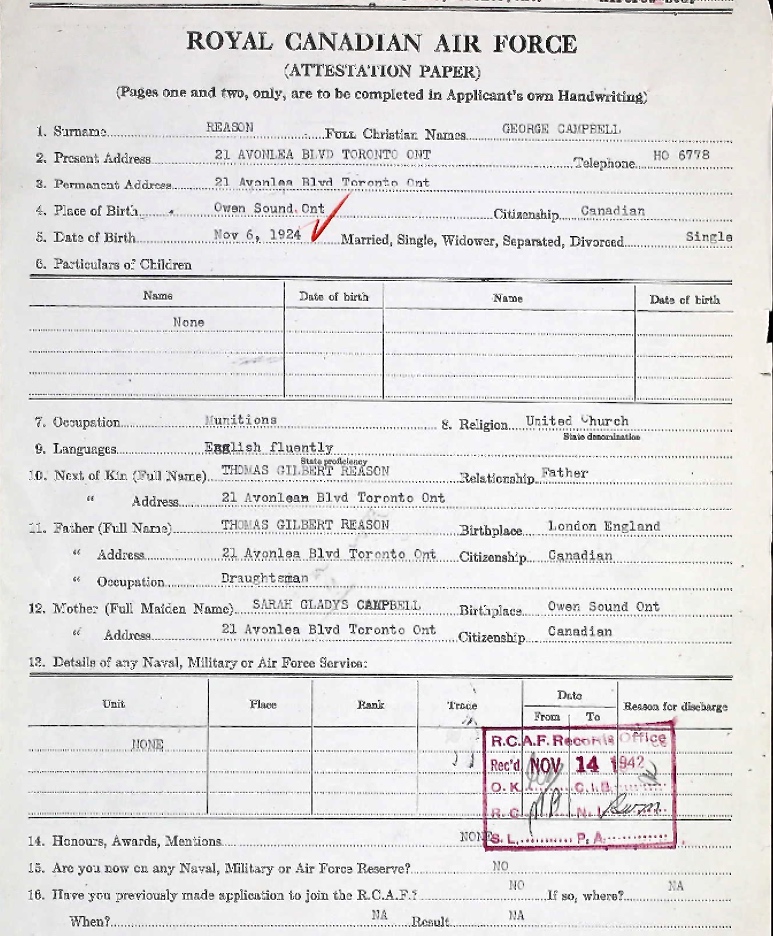 ROYAL CANADIAN AIR FORCE
(ATTESTATION PAPER)
(Pages one and two, only, are to be completed in Applicant's own Handwriting)
1. Surname REASON FULL Christian Names GEORGE CAMPBELL
2. Present Address 21 AVONLEA BLVD TORONTO ONT Telephone HO 6778
3. Permanent Address 21 Avonlea Blvd Toronto Ont
4. Place of Birth Owen Sound Ont Citizenship Canadian
5. Date of Birth Nov 6, 1924 Married, Single, Widower, Separated, Divorced Single
6. Particulars of Children
Name Date of birth Name Date of birth
None
7. Occupation Munitions 8. Religion United Church
State denomination
9. Languages English fluently
State proficiency
10. Next of Kin (Full Name) THOMAS GILBERT REASON Relationship Father
" Address 21 Avonlean Blvd Toronto Ont
11. Father (Full Name) THOMAS GILBERT REASON Birthplace London England
" Address 21 Avonlea Blvd Toronto Ont Citizenship Canadian
" Occupation Draughtsman
12. Mother (Full Maiden Name) SARAH GLADYS CAMPBELL Birthplace Owen Sound Ont
" Address 21 Avonlea Blvd Toronto Ont Citizenship Canadian
13. Details of any Naval, Military or Air Force Service:
Unit Place Rank Trade Date Reason for discharge
From To
NONE
R.C.A.F. Records Office
Rec'd NOV 14 1942
O.K. C.I.B.
R.C. N.I.
S.L. P.A.
14. Honours, Awards, Mentions NONE
15. Are you now on any Naval, Military or Air Force Reserve? NO
16. Have you previously made application to join the R.C.A.F.? NO If so, where? NA
When? NA Result NA